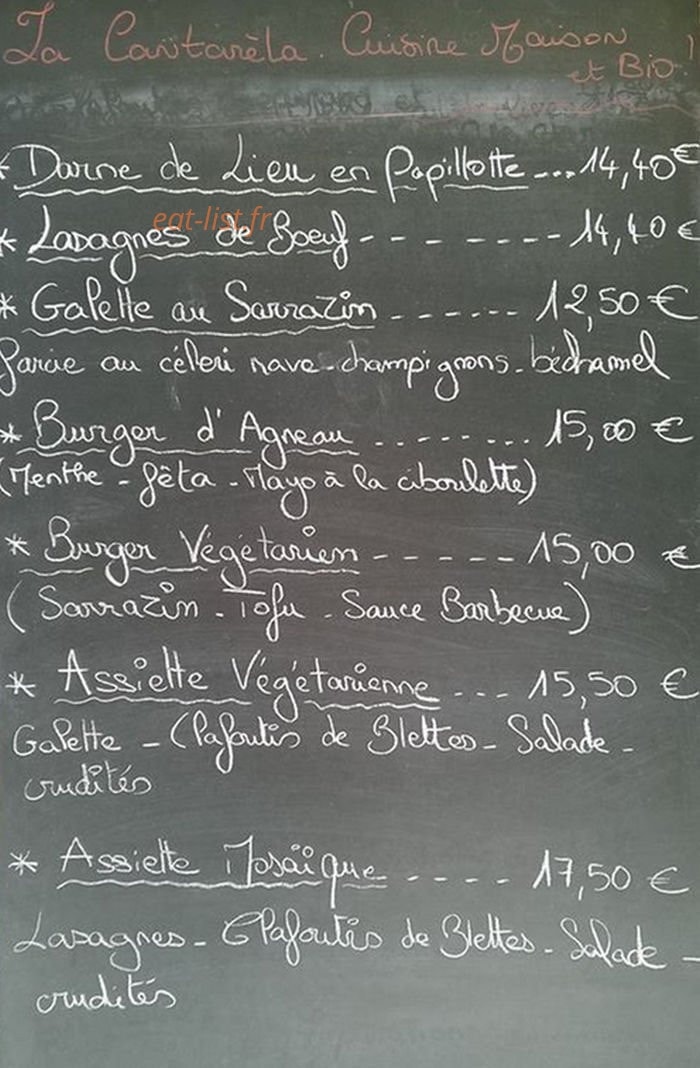 La Cantarèla. Cuisine Maison
et Bio!
* Darne de Lieu en Papillotte ... 14,40€
eat-list.fr
* Lasagnes de Boeuf - - - - - - - - 14,40 €
* Galette au Sarrazin ....... 12,50 €
Farcie au céleri rave - champignons - béchamel
* Burger d'Agneau ......... 15,00 €
(Menthe - fêta - Mayo à la ciboulette)
* Burger Végétarien - - - - - - 15,00 €
(Sarrazin - Tofu - Sauce Barbecue)
* Assiette Végétarienne .... 15,50 €
Galette - Clafoutis de Blettes - Salade -
crudités
* Assiette Mosaïque ..... 17,50 €
Lasagnes - Clafoutis de Blettes - Salade -
crudités